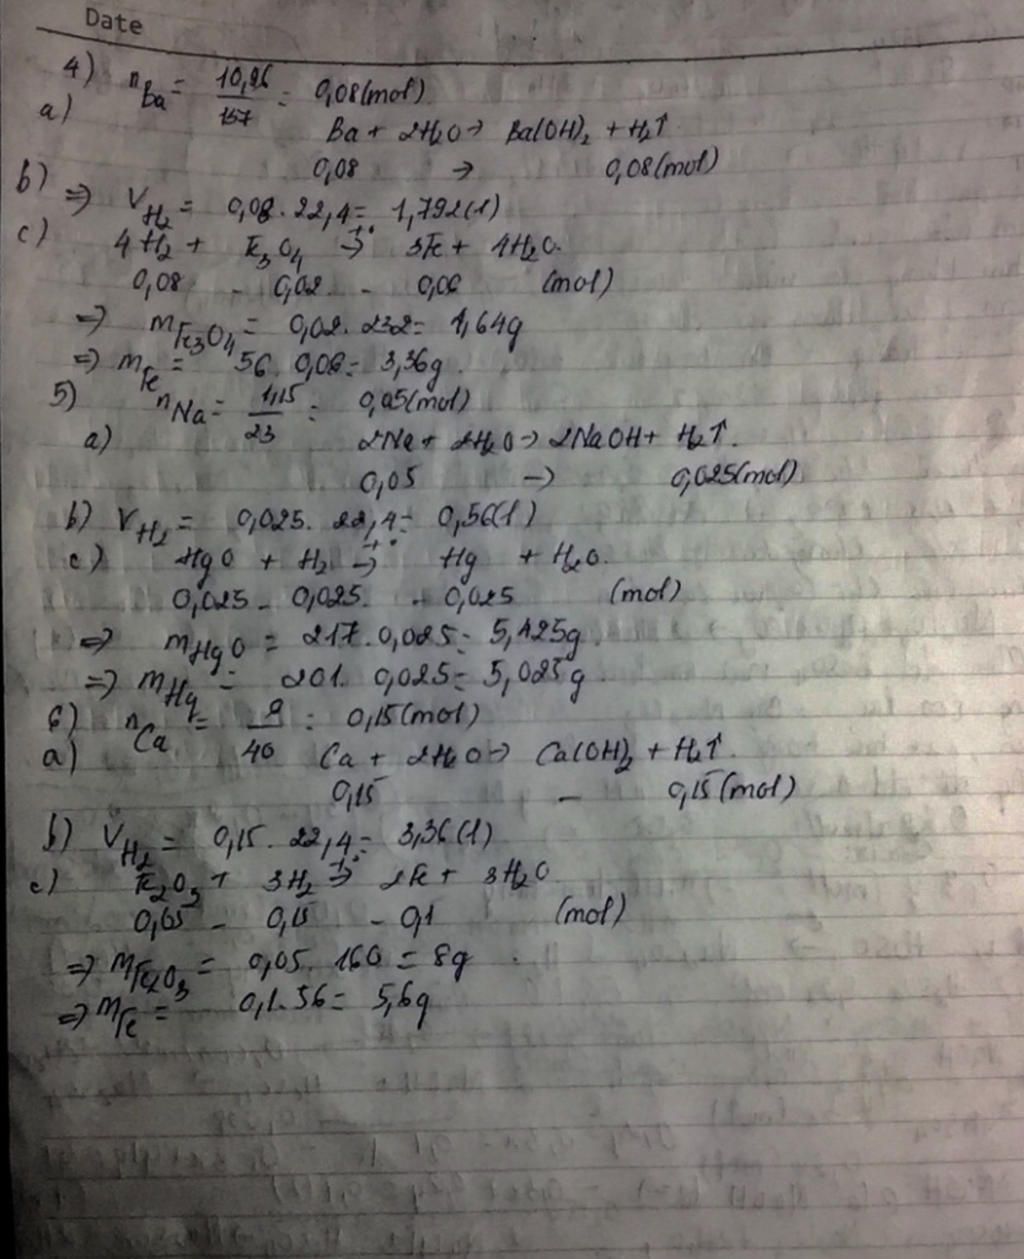 Date
4) nBa = 10,96/137 = 0,08(mol)
a) Ba + 2H₂O → Ba(OH)₂ + H₂↑
0,08 → 0,08(mol)
b) ⇒ VH₂ = 0,08 . 22,4 = 1,792(l)
c) 4H₂ + Fe₃O₄ →t° 3Fe + 4H₂O.
0,08 - 0,02 - 0,06 (mol)
⇒ mFe₃O₄ = 0,02. 232 = 1,64g
⇒ mFe = 56. 0,06 = 3,36g.
5) nNa = 1,15/23 = 0,05(mol)
a) 2Na + 2H₂O → 2NaOH + H₂↑.
0,05 → 0,025(mol)
b) VH₂ = 0,025. 22,4 = 0,56(l)
c) HgO + H₂ →t° Hg + H₂O.
0,025 - 0,025 - 0,025 (mol)
⇒ mHgO = 217. 0,025 = 5,425g.
⇒ mHg = 201. 0,025 = 5,025g.
6) nCa = 9/40 = 0,15(mol)
a) Ca + 2H₂O → Ca(OH)₂ + H₂↑.
0,15 - 0,15(mol)
b) VH₂ = 0,15. 22,4 = 3,36(l)
c) Fe₂O₃ + 3H₂ →t° 2Fe + 3H₂O
0,05 - 0,15 - 0,1 (mol)
⇒ mFe₂O₃ = 0,05. 160 = 8g.
⇒ mFe = 0,1. 56 = 5,6g